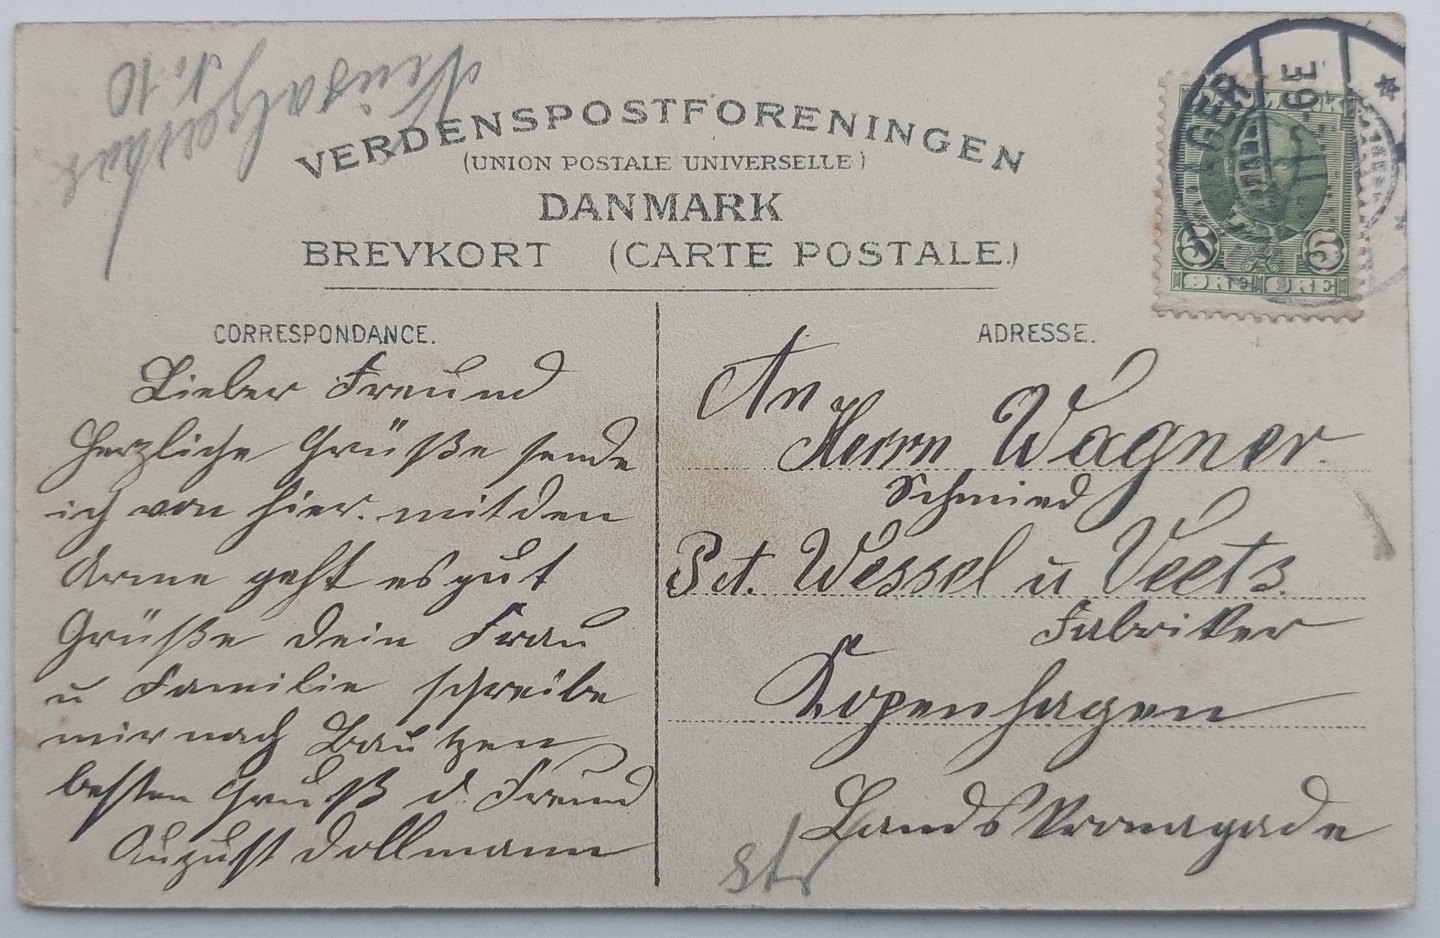 VERDENSPOSTFORENINGEN
(UNION POSTALE UNIVERSELLE)
DANMARK
BREVKORT (CARTE POSTALE.)
11.2-6E
5 5
ØRE ØRE
CORRESPONDANCE.
Lieber Freund
Herzliche Grüße sende
ich von hier. mit den
Arme geht es gut
Grüße dein Frau
u Familie schreibe
mir nach Bautzen
besten Gruß d. Freund
August Dollmann
ADRESSE.
An
Herrn Wagner.
Schmied
Wessel u
Fabriker
Kopenhagen
str